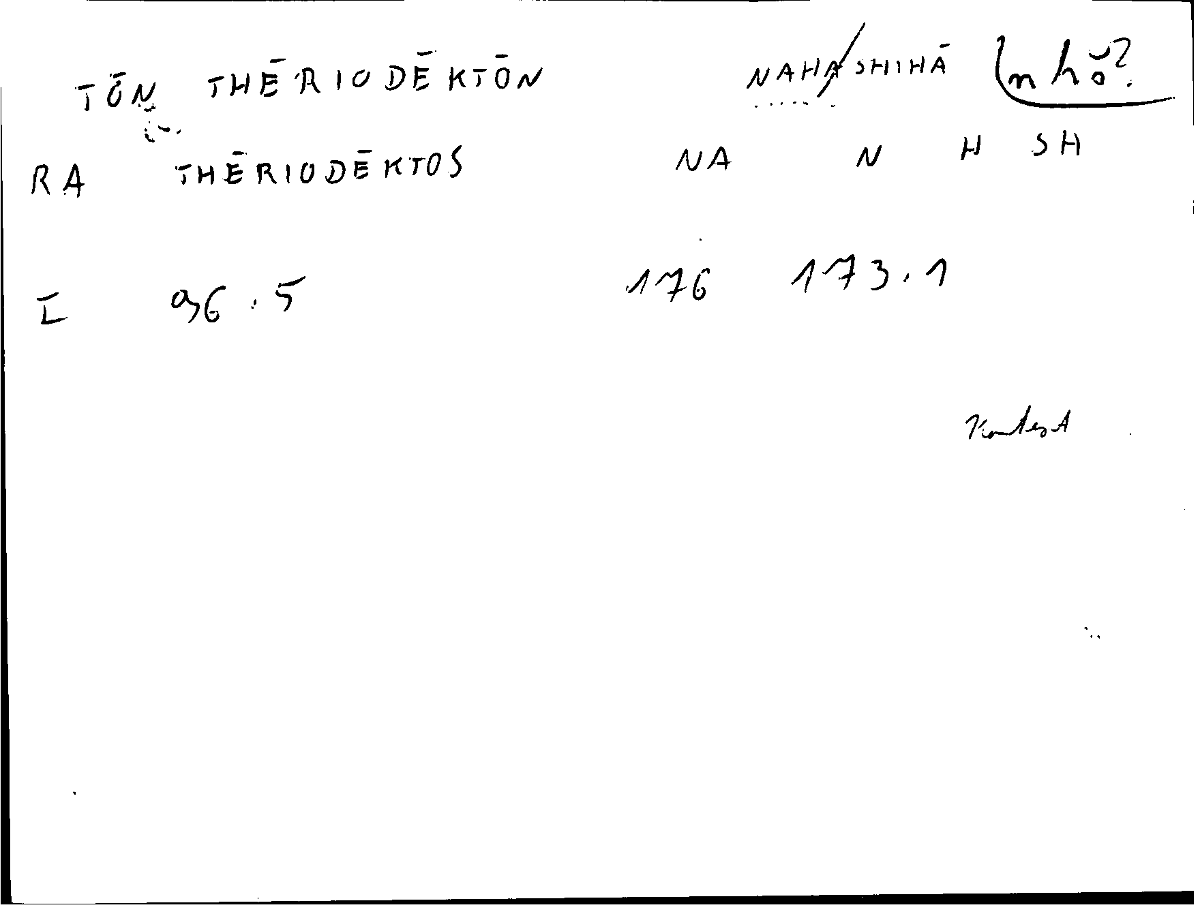 TŌN THĒRIODĒKTŌN NAHASHIHĀ
RA THĒRIODĒKTOS NA N H SH
I 96.5 176 173.1
Kontext